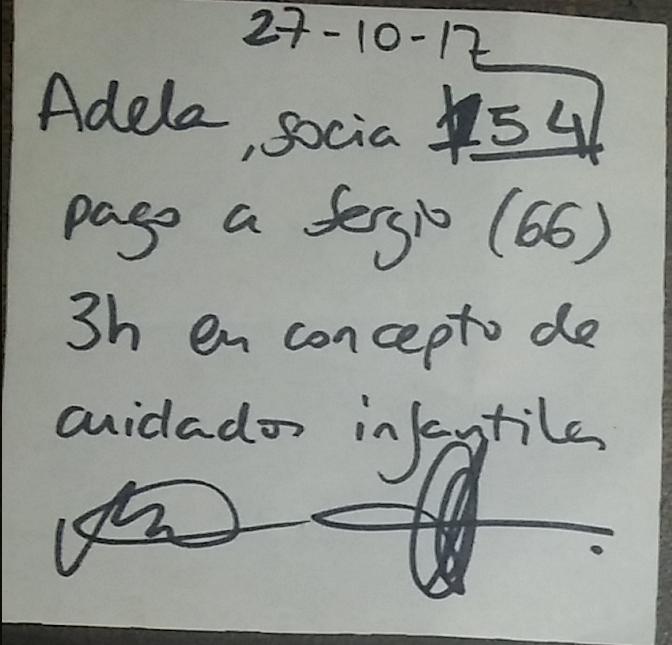 27-10-17
Adela, socia 154
pago a Sergio (66)
3h en concepto de
cuidados infantiles